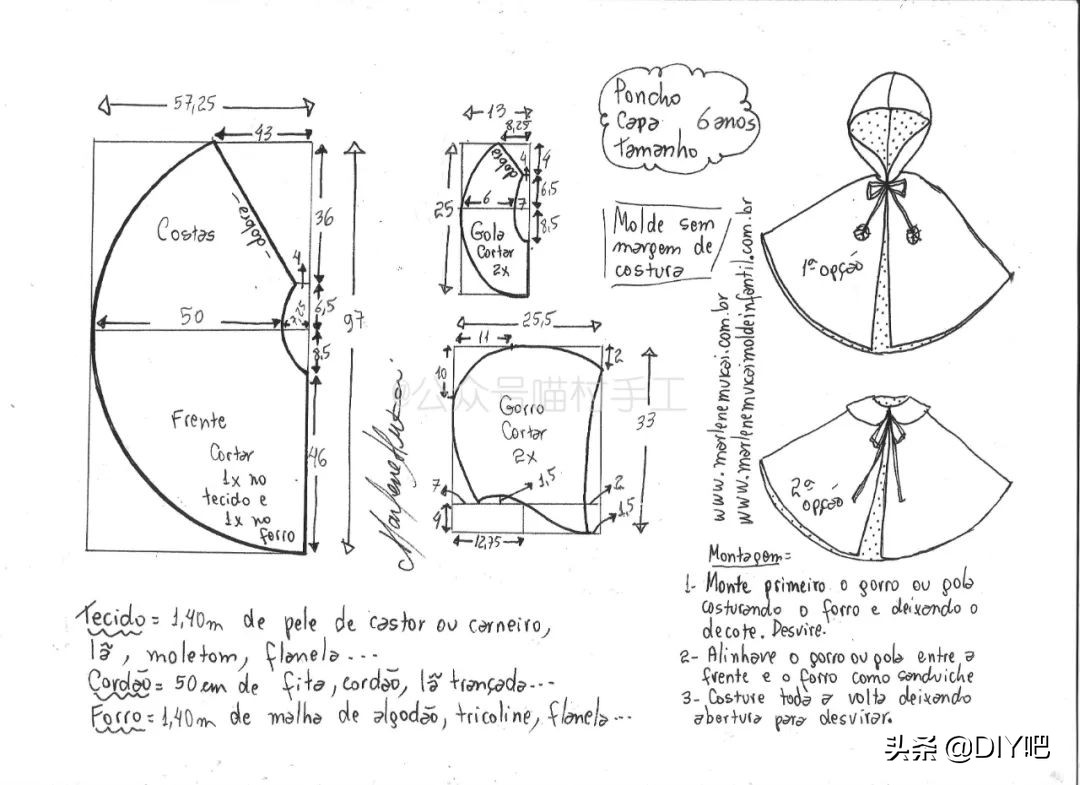 57,25
43
Costas
dobra
36
4
6,5
7,25
50
97
8,5
Frente
Cortar
1x no
tecido e
1x no
forro
46
13
8,25
dobra
4
4
6,5
25
6
7
8,5
Gola
Cortar
2x
Poncho
Capa 6 anos
Tamanho
Molde sem
margem de
costura
25,5
11
2
10
Gorro
Cortar
2x
33
7
1,5
2
4
1,5
12,75
Marlene Mukai
@公众号喵村手工
www.marlenemukai.com.br
www.marlenemukaimoldeinfantil.com.br
1ª opção
2ª
opção
Tecido = 1,40m de pele de castor ou carneiro,
lã, moletom, flanela...
Cordão = 50 cm de fita, cordão, lã trançada...
Forro = 1,40m de malha de algodão, tricoline, flanela...
Montagem =
1- Monte primeiro o gorro ou gola
costurando o forro e deixando o
decote. Desvire.
2- Alinhave o gorro ou gola entre a
frente e o forro como sanduiche
3- Costure toda a volta deixando
abertura para desvirar.
头条 @DIY吧